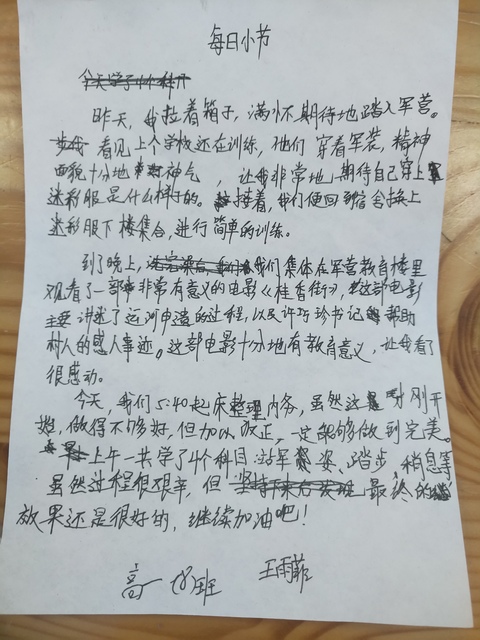 每日小节
昨天,我拉着箱子,满怀期待地踏入军营。
看见上个学校还在训练,他们穿着军装,精神
面貌十分地神气,让我非常地期待自己穿上
迷彩服是什么样子的。接着,我们便回到宿舍换上
迷彩服下楼集合,进行简单的训练。
到了晚上,我们集体在军营教育楼里
观看了一部非常有意义的电影《桂香街》,这部电影
主要讲述了的过程,以及许巧珍书记帮助
村人的感人事迹。这部电影十分地有教育意义,让我看了
很感动。
今天,我们5:40起床整理内务,虽然这刚开
始,做得不够好,但加以改正,一定能够做到完美。
上午一共学了4个科目:站军姿、踏步、稍息等
虽然过程很艰辛,但最终的
效果还是很好的,继续加油吧!
高一 班 王雨菲